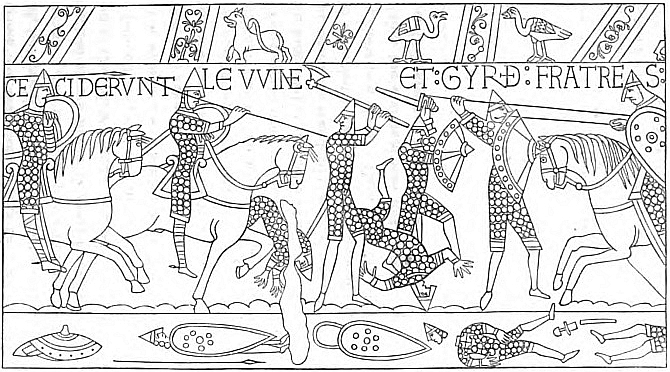 CECIDERVNT LEVVINE ET : GYRÐ : FRATRES :